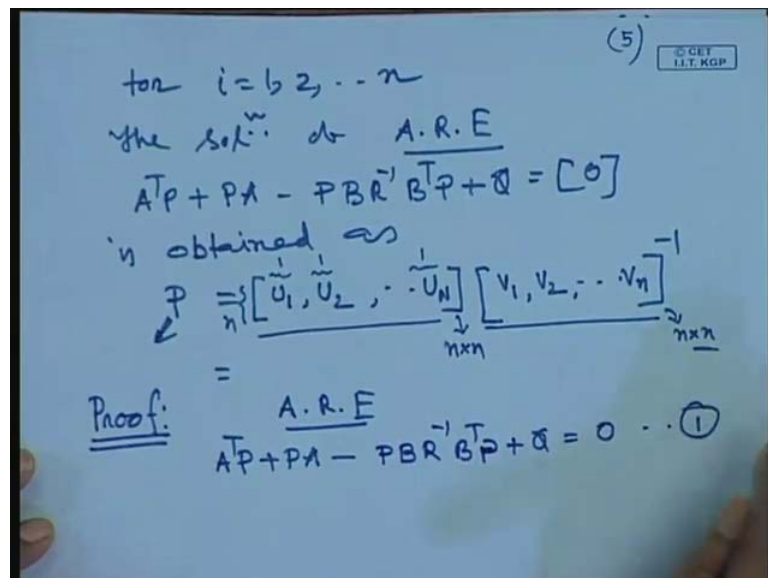 (5)
© CET
I.I.T. KGP
for i = 1, 2, ·· n
The solⁿ. do A.R.E
AᵀP + PA - PBR⁻¹BᵀP + Q = [0]
is obtained as
P = [U₁, U₂, ·· U_N] [V₁, V₂, ·· Vₙ]⁻¹
n 1 1 1 n×n n×n
=
Proof: A.R.E
AᵀP + PA - PBR⁻¹BᵀP + Q = 0 ·· ①